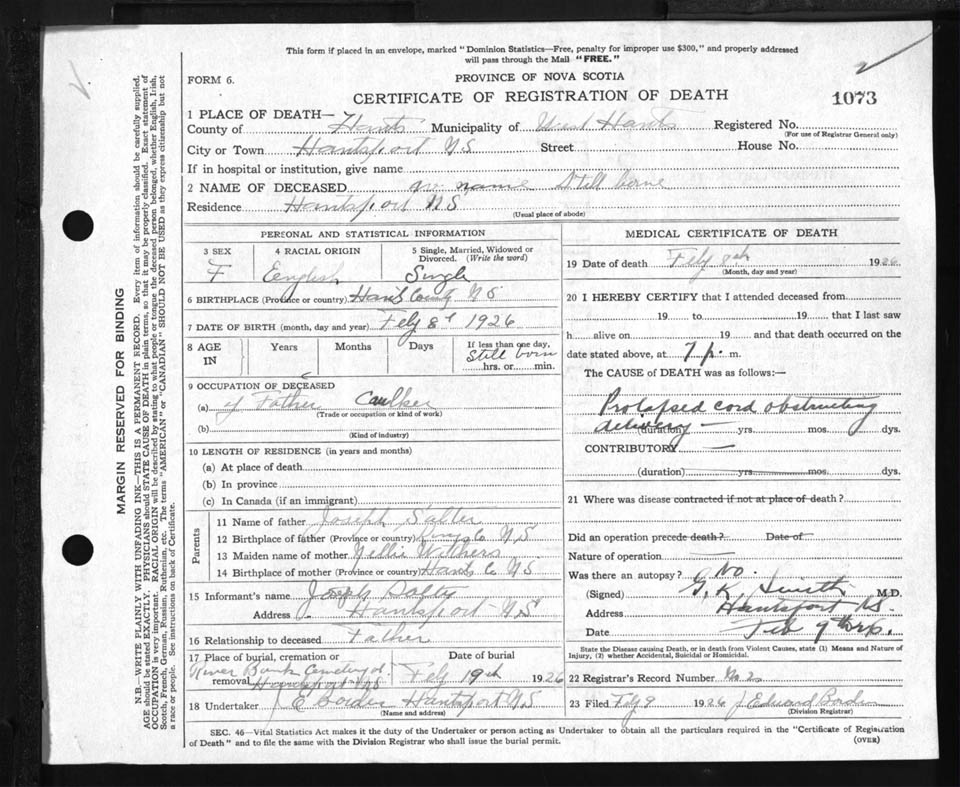 This form if placed in an envelope, marked "Dominion Statistics—Free, penalty for improper use $300," and properly addressed
will pass through the Mail "FREE."
FORM 6.
PROVINCE OF NOVA SCOTIA
CERTIFICATE OF REGISTRATION OF DEATH
1073
1 PLACE OF DEATH—
County of Hants Municipality of West Hants Registered No.
(For use of Registrar General only)
City or Town Hantsport N S Street House No.
If in hospital or institution, give name
2 NAME OF DECEASED no name Still borne
Residence Hantsport N S
(Usual place of abode)
PERSONAL AND STATISTICAL INFORMATION
3 SEX 4 RACIAL ORIGIN 5 Single, Married, Widowed or
Divorced. (Write the word)
F English Single
6 BIRTHPLACE (Province or country) Hants County N S
7 DATE OF BIRTH (month, day and year) Feby 8th 1926
8 AGE IN Years Months Days If less than one day,
Still born
hrs. or min.
9 OCCUPATION OF DECEASED
(a) of Father Caulker
(Trade or occupation or kind of work)
(b)
(Kind of industry)
10 LENGTH OF RESIDENCE (in years and months)
(a) At place of death
(b) In province
(c) In Canada (if an immigrant)
Parents
11 Name of father Joseph Salter
12 Birthplace of father (Province or country) Kings Co N S
13 Maiden name of mother Nellie Withers
14 Birthplace of mother (Province or country) Hants Co N S
15 Informant's name Joseph Salter
Address Hantsport N S
16 Relationship to deceased Father
17 Place of burial, cremation or removal Date of burial
River Bank Cemetery
Hantsport NS Feby 19th 1926
18 Undertaker Hantsport N S
(Name and address)
MEDICAL CERTIFICATE OF DEATH
19 Date of death Feby 8th 1926
(Month, day and year)
20 I HEREBY CERTIFY that I attended deceased from
19 to 19, that I last saw
h alive on 19 and that death occurred on
date stated above, at 7 p. m.
The CAUSE of DEATH was as follows:—
Prolapsed cord obstructing
delivery —
(duration) yrs. mos. dys.
CONTRIBUTORY —
(duration) yrs. mos. dys.
21 Where was disease contracted if not at place of death?
Did an operation precede death? Date of
Nature of operation —
Was there an autopsy? No.
(Signed) G. K. Smith M.D.
Address Hantsport NS.
Date Feb 9th
State the Disease causing Death, or in death from Violent Causes, state (1) Means and Nature of
Injury, (2) whether Accidental, Suicidal or Homicidal.
22 Registrar's Record Number No. 2
23 Filed Feby 9 1926 J Edward Borden
(Division Registrar)
SEC. 46—Vital Statistics Act makes it duty of the Undertaker or person acting as Undertaker to obtain all the particulars required in the "Certificate of Registration
of Death" and to file the same with the Division Registrar who shall issue the burial permit.
(OVER)
MARGIN RESERVED FOR BINDING
N.B.—WRITE PLAINLY WITH UNFADING INK—THIS IS A PERMANENT RECORD. Every item of information should be carefully supplied.
AGE should be stated EXACTLY. PHYSICIANS should STATE CAUSE OF DEATH in plain terms, so that it may be properly classified. Exact statement of
OCCUPATION is very important. RACIAL ORIGIN will be described by stating to what people or tongue the deceased person belonged, whether English, Irish,
Scotch, French, German, Russian, Ruthenian, etc. The terms "AMERICAN" or "CANADIAN" SHOULD NOT BE USED as they express citizenship but not
a race or people. See instructions on back of Certificate.